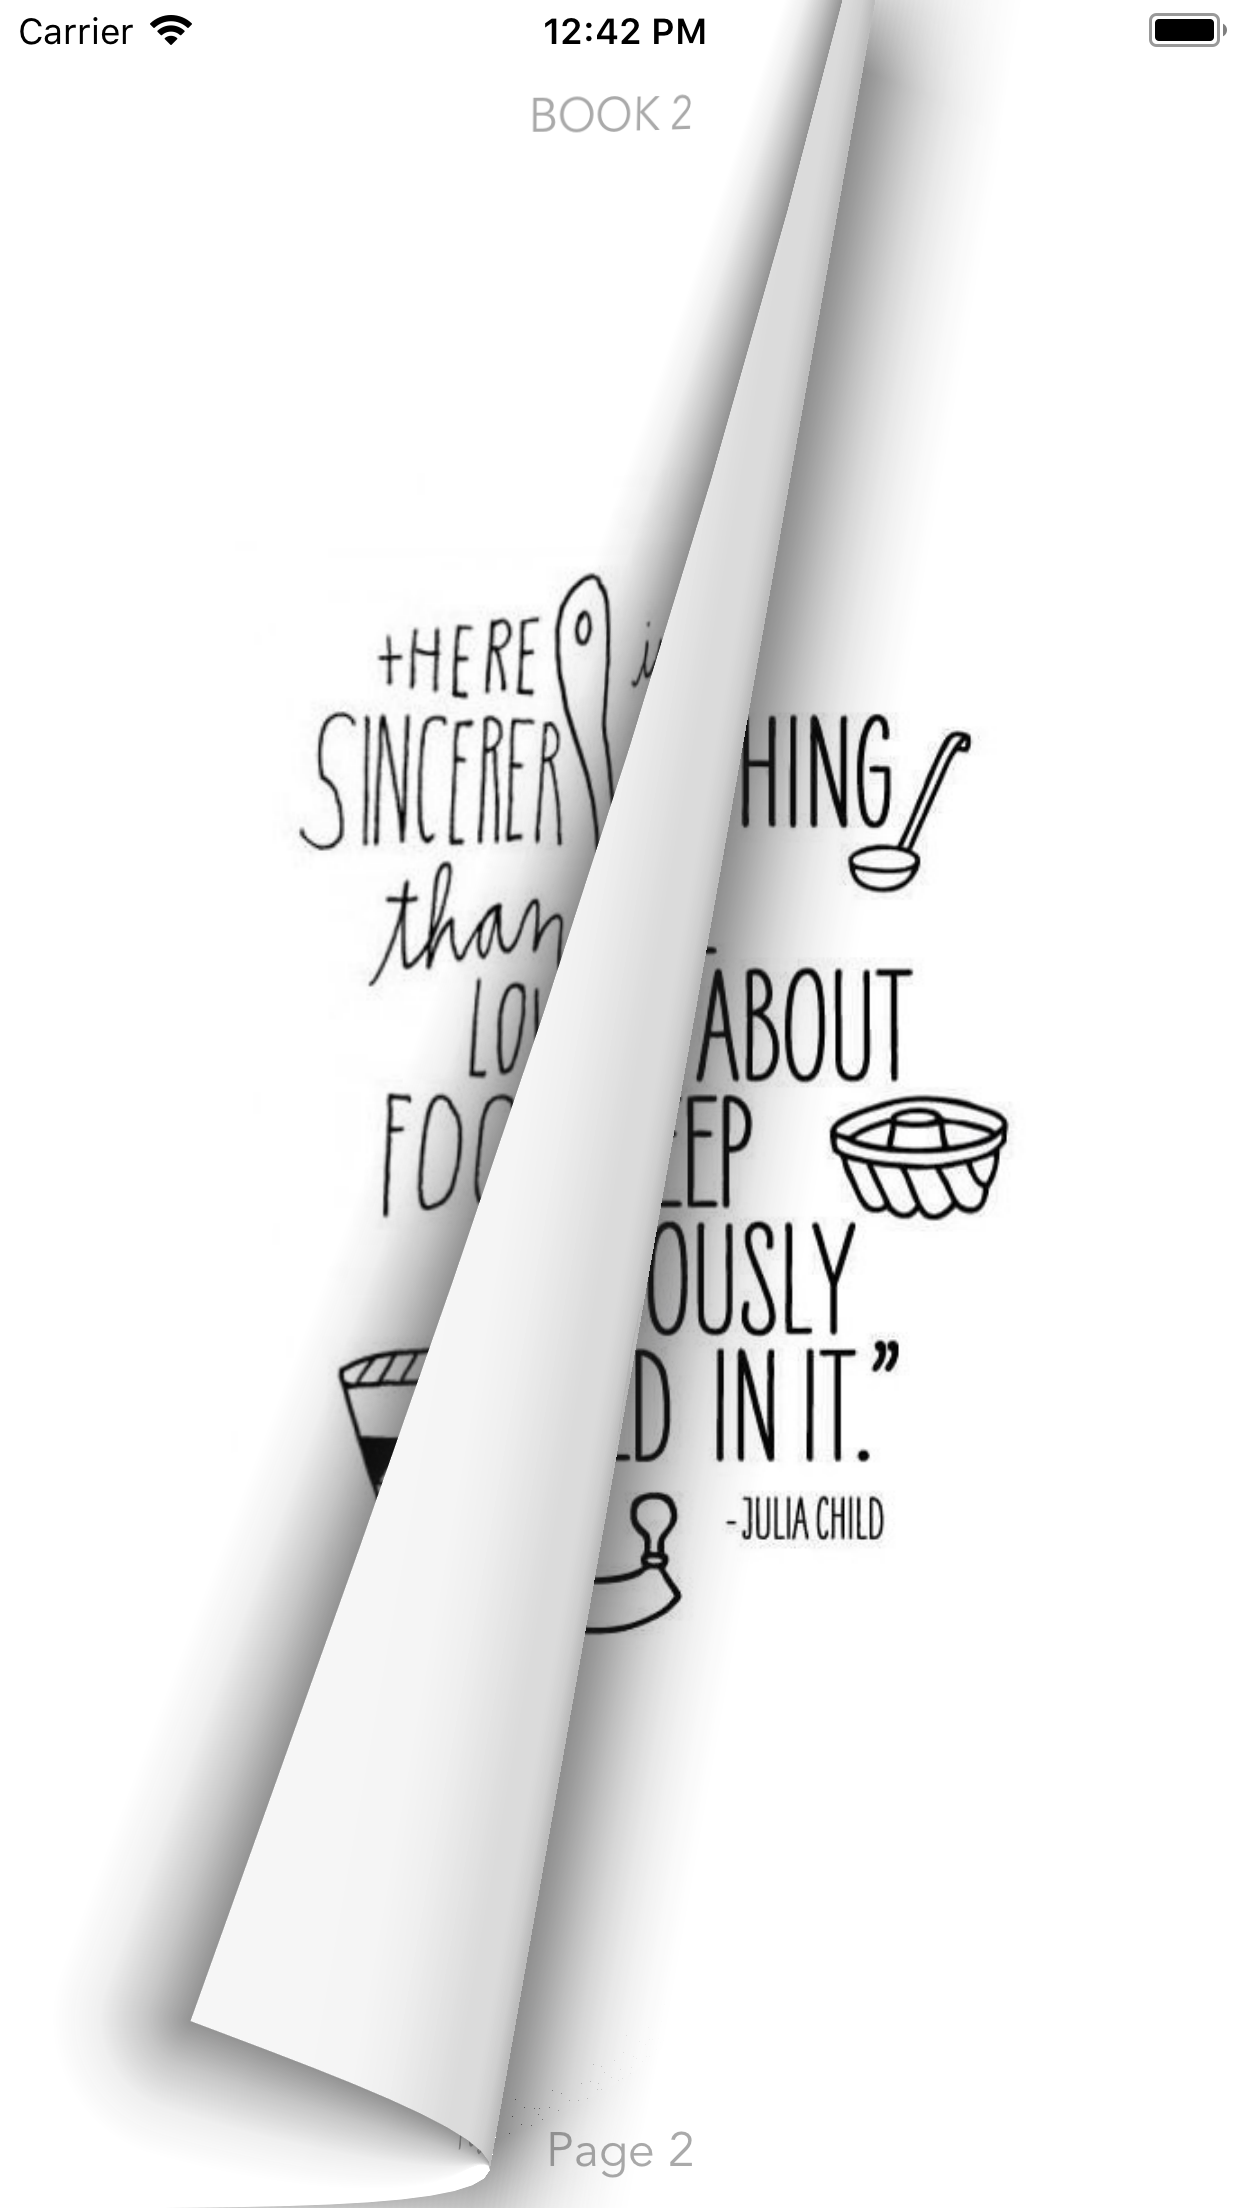 Carrier 12:42 PM
BOOK 2
+HERE
SINCERER HING
than
ABOUT
EP
OUSLY
D IN IT.”
-JULIA CHILD
Page 2